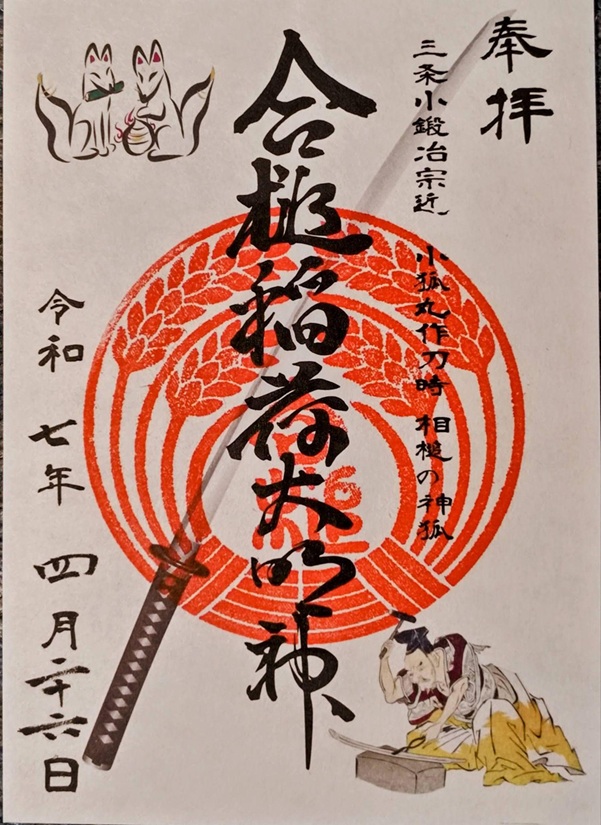 奉拝
三条小鍛冶宗近 小狐丸作刀時 相槌の神狐
合槌稲荷大明神
令和 七年 四月二十六日